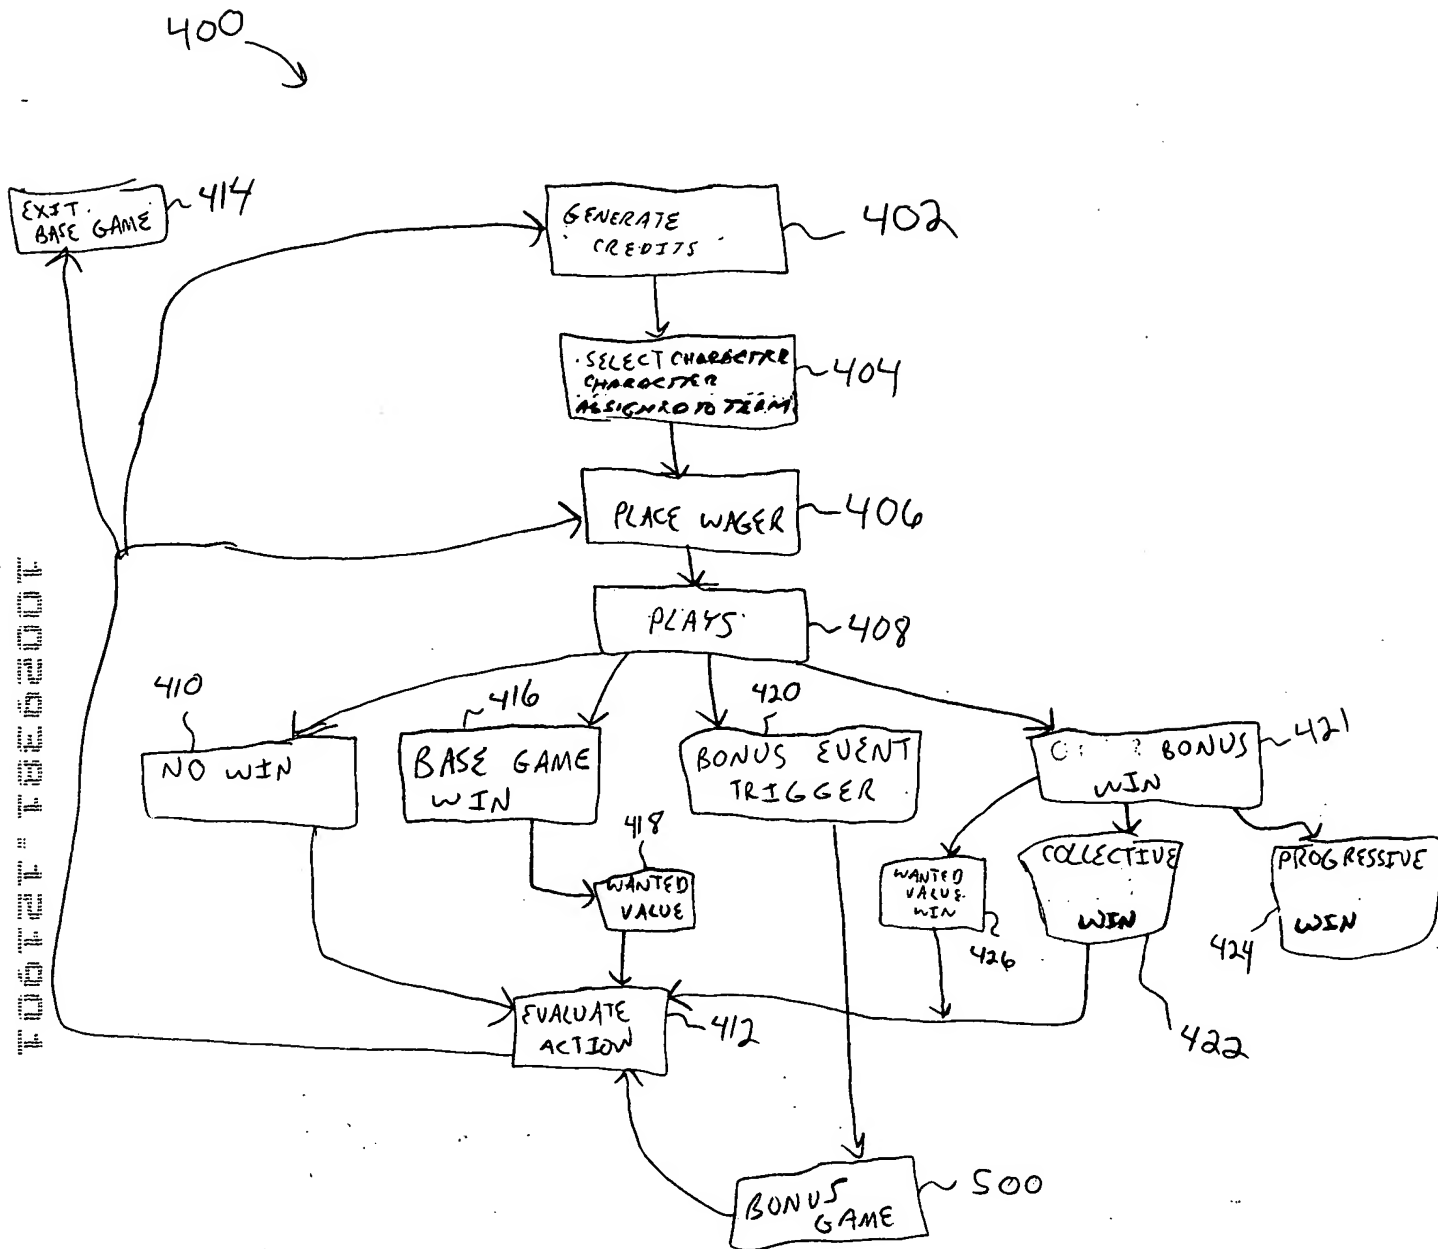 400
EXIT
BASE GAME
414
GENERATE
CREDITS
402
SELECT CHARACTER
CHARACTER
ASSIGNED TO TEAM
404
PLACE WAGER
406
PLAYS
408
410
NO WIN
416
BASE GAME
WIN
420
BONUS EVENT
TRIGGER
BONUS
WIN
421
418
WANTED
VALUE
WANTED
VALUE
WIN
426
COLLECTIVE
WIN
422
PROGRESSIVE
WIN
424
EVALUATE
ACTION
412
BONUS
GAME
500
10029381.121901